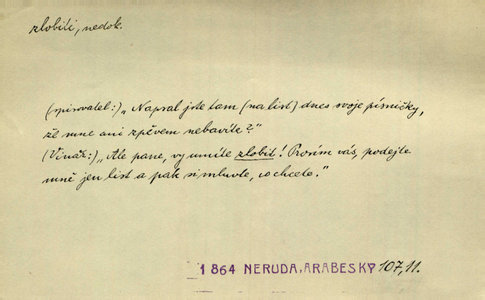 zlobiti, nedok.
(spisovatel:) „Napsal jste tam (na list) dnes svoje písničky,
že mne ani zpěvem nebavíte?"
(Vinař:) „Ale pane, vy umíte zlobit! Prosím vás, podejte
mně jen list a pak si mluvte, co chcete."
1864 NERUDA, ARABESKY 107,11.